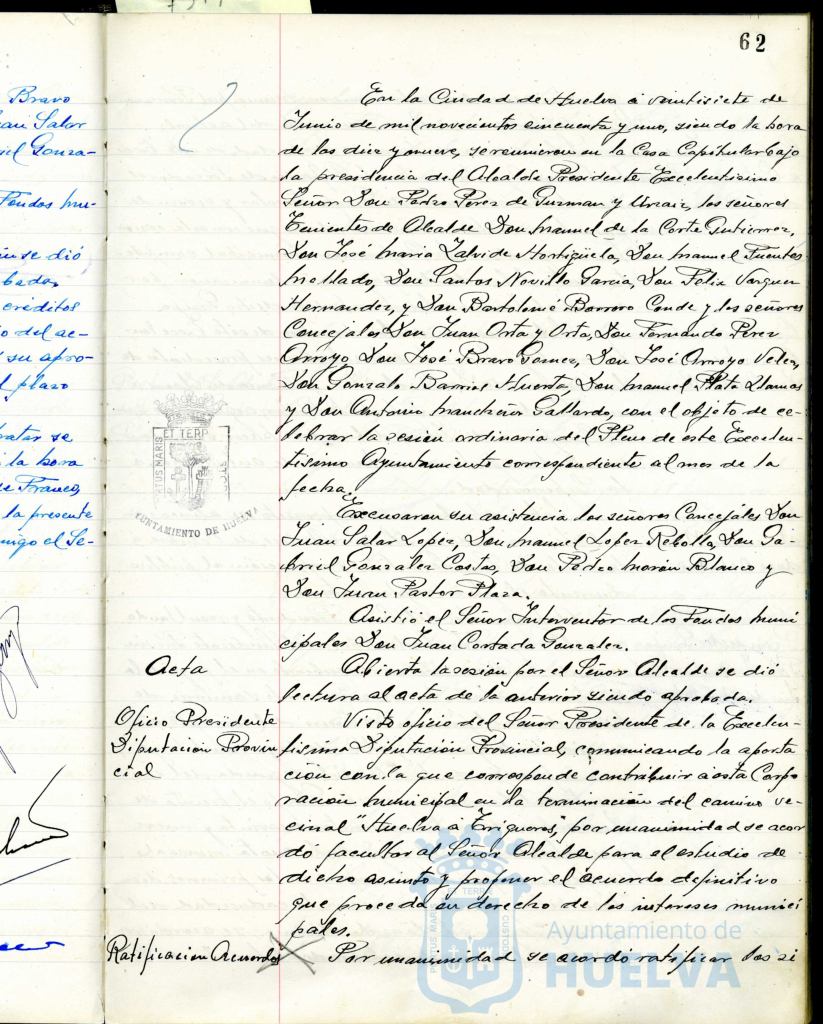 62
Bravo
Juan Salar
Gonza-
Fondos mu-
se dió
créditos
del ac-
su apro-
plazo
tratar se
la hora
Franco,
la presente
migo el Se-
En la Ciudad de Huelva a veintisiete de
Junio de mil novecientos cincuenta y uno, siendo la hora
de las diez y nueve, se reunieron en la Casa Capitular bajo
la presidencia del Alcalde Presidente Excelentisimo
Señor Don Pedro Perez de Guzman y Urzaiz, los señores
Tenientes de Alcalde Don Manuel de la Corte Gutierrez,
Don José Maria Zalvide Hortigüela, Don Manuel Fuentes
Mellado, Don Santos Novillo Garcia, Don Felix Vazquez
Hernandez, y Don Bartolomé Borrero Conde y los señores
Concejales Don Juan Orta y Orta, Don Fernando Perez
Arroyo, Don José Bravo Gomez, Don José Arroyo Velez,
Don Gonzalo Barrios Huerta, Don Manuel Plata Llamas
y Don Antonio Mancheño Gallardo, con el objeto de ce-
lebrar la sesión ordinaria del Pleno de este Excelen-
tisimo Ayuntamiento correspondiente al mes de la
fecha.
PORTUS MARIS ET TERR
AYUNTAMIENTO DE HUELVA
Excusaron su asistencia los señores Concejales Don
Juan Salar Lopez, Don Manuel Lopez Rebollo, Don Ga-
briel Gonzalez Costas, Don Pedro Morón Blanco y
Don Juan Pastor Plaza.
Asistió el Señor Interventor de los Fondos muni
cipales Don Juan Cortada Gonzalez.
Acta
Abierta la sesión por el Señor Alcalde se dió
lectura al acta de la anterior siendo aprobada.
Oficio Presidente
Diputación Provin
cial
Visto oficio del Señor Presidente de la Excelen-
tísima Diputación Provincial, comunicando la aporta
ción con la que corresponde contribuir a esta Corpo
ración Municipal en la terminación del camino ve-
cinal "Huelva a Trigueros", por unanimidad se acor
dó facultar al Señor Alcalde para el estudio de
dicho asunto y proponer el acuerdo definitivo
que proceda en derecho de los intereses munici
pales.
Ratificacion Acuerdos
Por unanimidad se acordó ratificar los si
PORTUS MARIS TERRE CUSTODIA
Ayuntamiento de
HUELVA